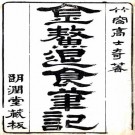 竹窗高士奇著
金鰲退食筆記
朗潤堂藏板